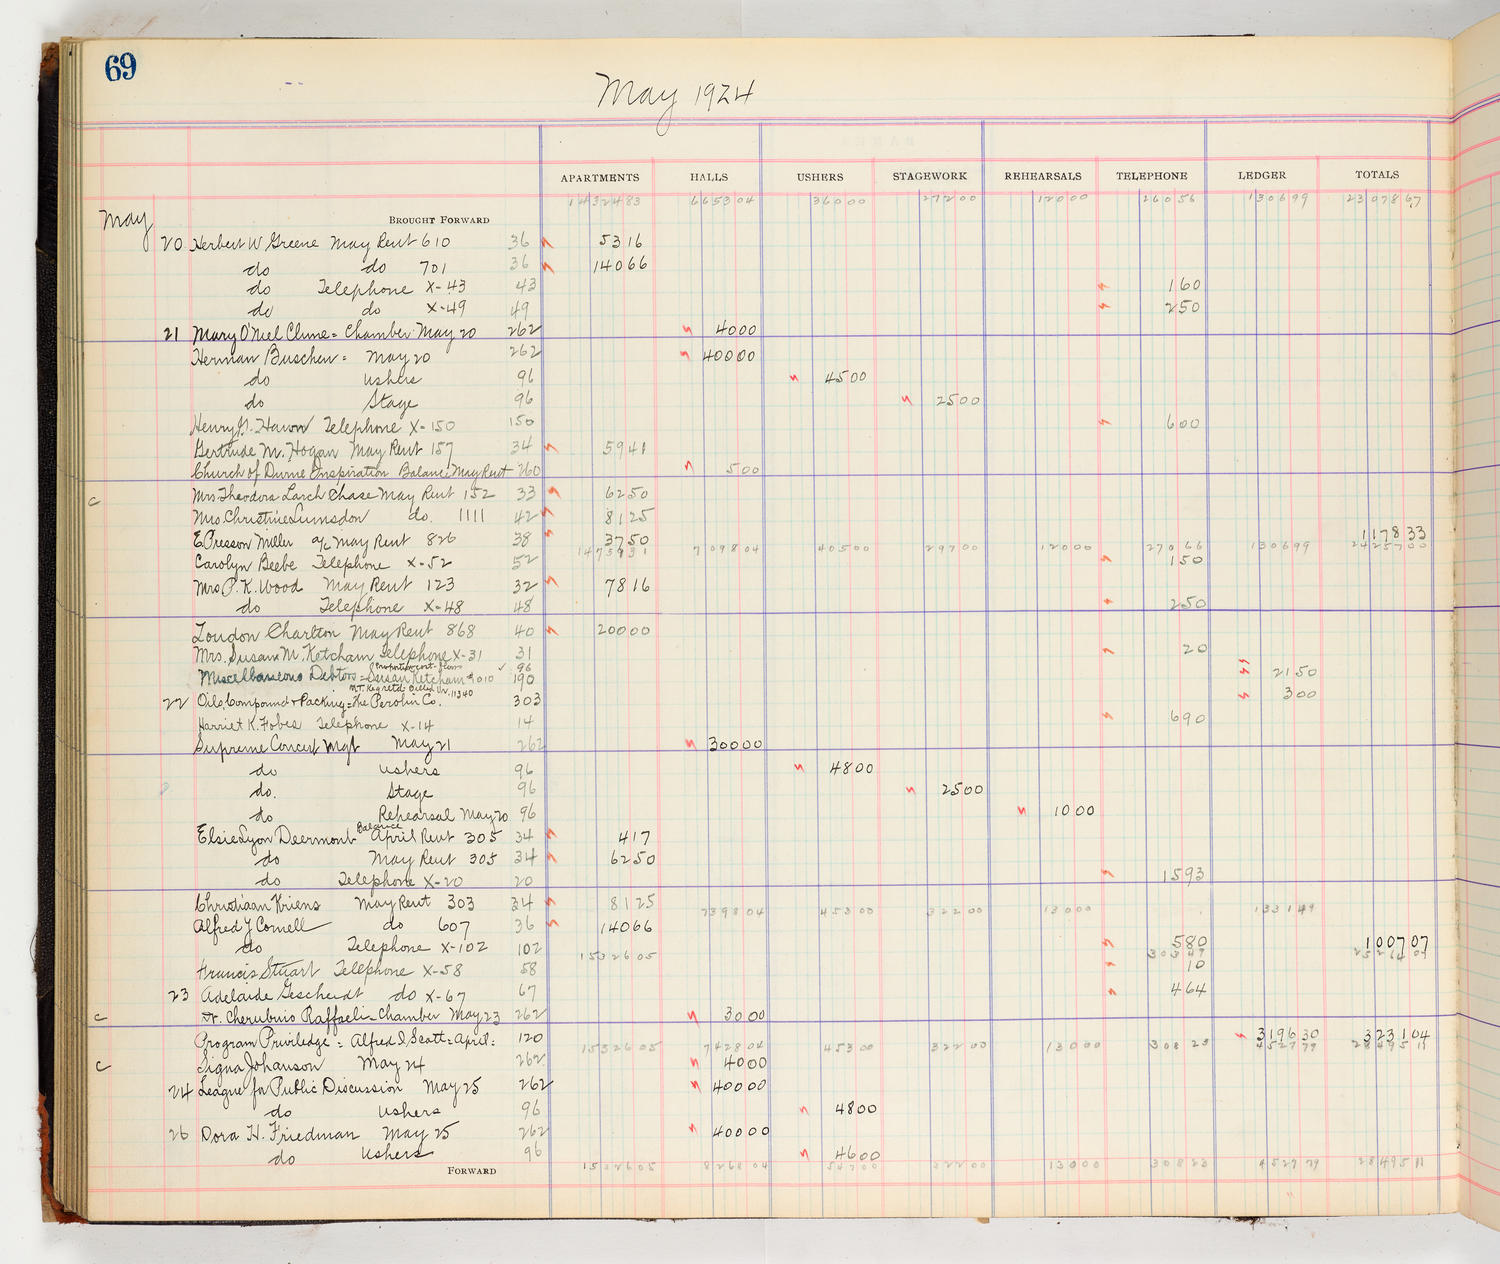 69
May 1924
APARTMENTS HALLS USHERS STAGEWORK REHEARSALS TELEPHONE LEDGER TOTALS
May BROUGHT FORWARD 1432483 665304 36000 27200 12000 26056 130699 2307867
20 Herbert W Greene May Rent 610 36 5316
do do 701 36 14066
do Telephone X-43 43 160
do do X-49 49 250
21 Mary O'Niel Clune = Chamber May 20 262 4000
Herman Buschen = May 20 262 40000
do ushers 96 4500
do Stage 96 2500
Henry Hawn Telephone X-150 150 600
Gertrude M. Hogan May Rent 157 34 5941
Church of Divine Inspiration Balance May Rent 260 500
c Mrs Theodora Larch Chase May Rent 152 33 6250
Mrs Christine Lumsdon do. 1111 42 8125
E Presson Miller a/c May Rent 826 38 3750 117833
1475931 709804 40500 29700 12000 27066 130699 2425700
Carolyn Beebe Telephone X-52 52 150
Mrs P. K. Wood May Rent 123 32 7816
do Telephone X-48 48 250
Loudon Charlton May Rent 868 40 20000
Mrs. Susan M. Ketcham Telephone X-31 31 20
Miscellaneous Debtors = Susan Ketcham #1010 ✓ 96 190 2150
22 Oils, Compound & Packing = The Perolin Co. 303 300
Harriet K. Fobes Telephone X-14 14 690
Supreme Concert Mgt May 21 262 30000
do ushers 96 4800
do. Stage 96 2500
do Rehearsal May 20 96 1000
Elsie Lyon Deermont Balance April Rent 305 34 417
do May Rent 305 34 6250
do Telephone X-20 20 1593
Christiaan Kriens May Rent 303 34 8125
739804 45300 32200 13000 133149
Alfred Y Cornell do 607 36 14066
do Telephone X-102 102 580 100707
1532605
Francis Stuart Telephone X-58 58 10
23 Adelaide Gescheidt do X-67 67 464
c Dr. Cherubino Raffaeli - Chamber May 23 262 3000
Program Priviledge = Alfred I Scott = April: 120 319630 323104
1532605 742804 45300 32200 13000 30823 452779 2849511
c Signa Johanson May 24 262 4000
24 League for Public Discussion May 25 262 40000
do ushers 96 4800
26 Dora H. Friedman May 25 262 40000
do ushers 96 4600
FORWARD 1532605 826804 54700 32200 13000 30823 452779 2849511